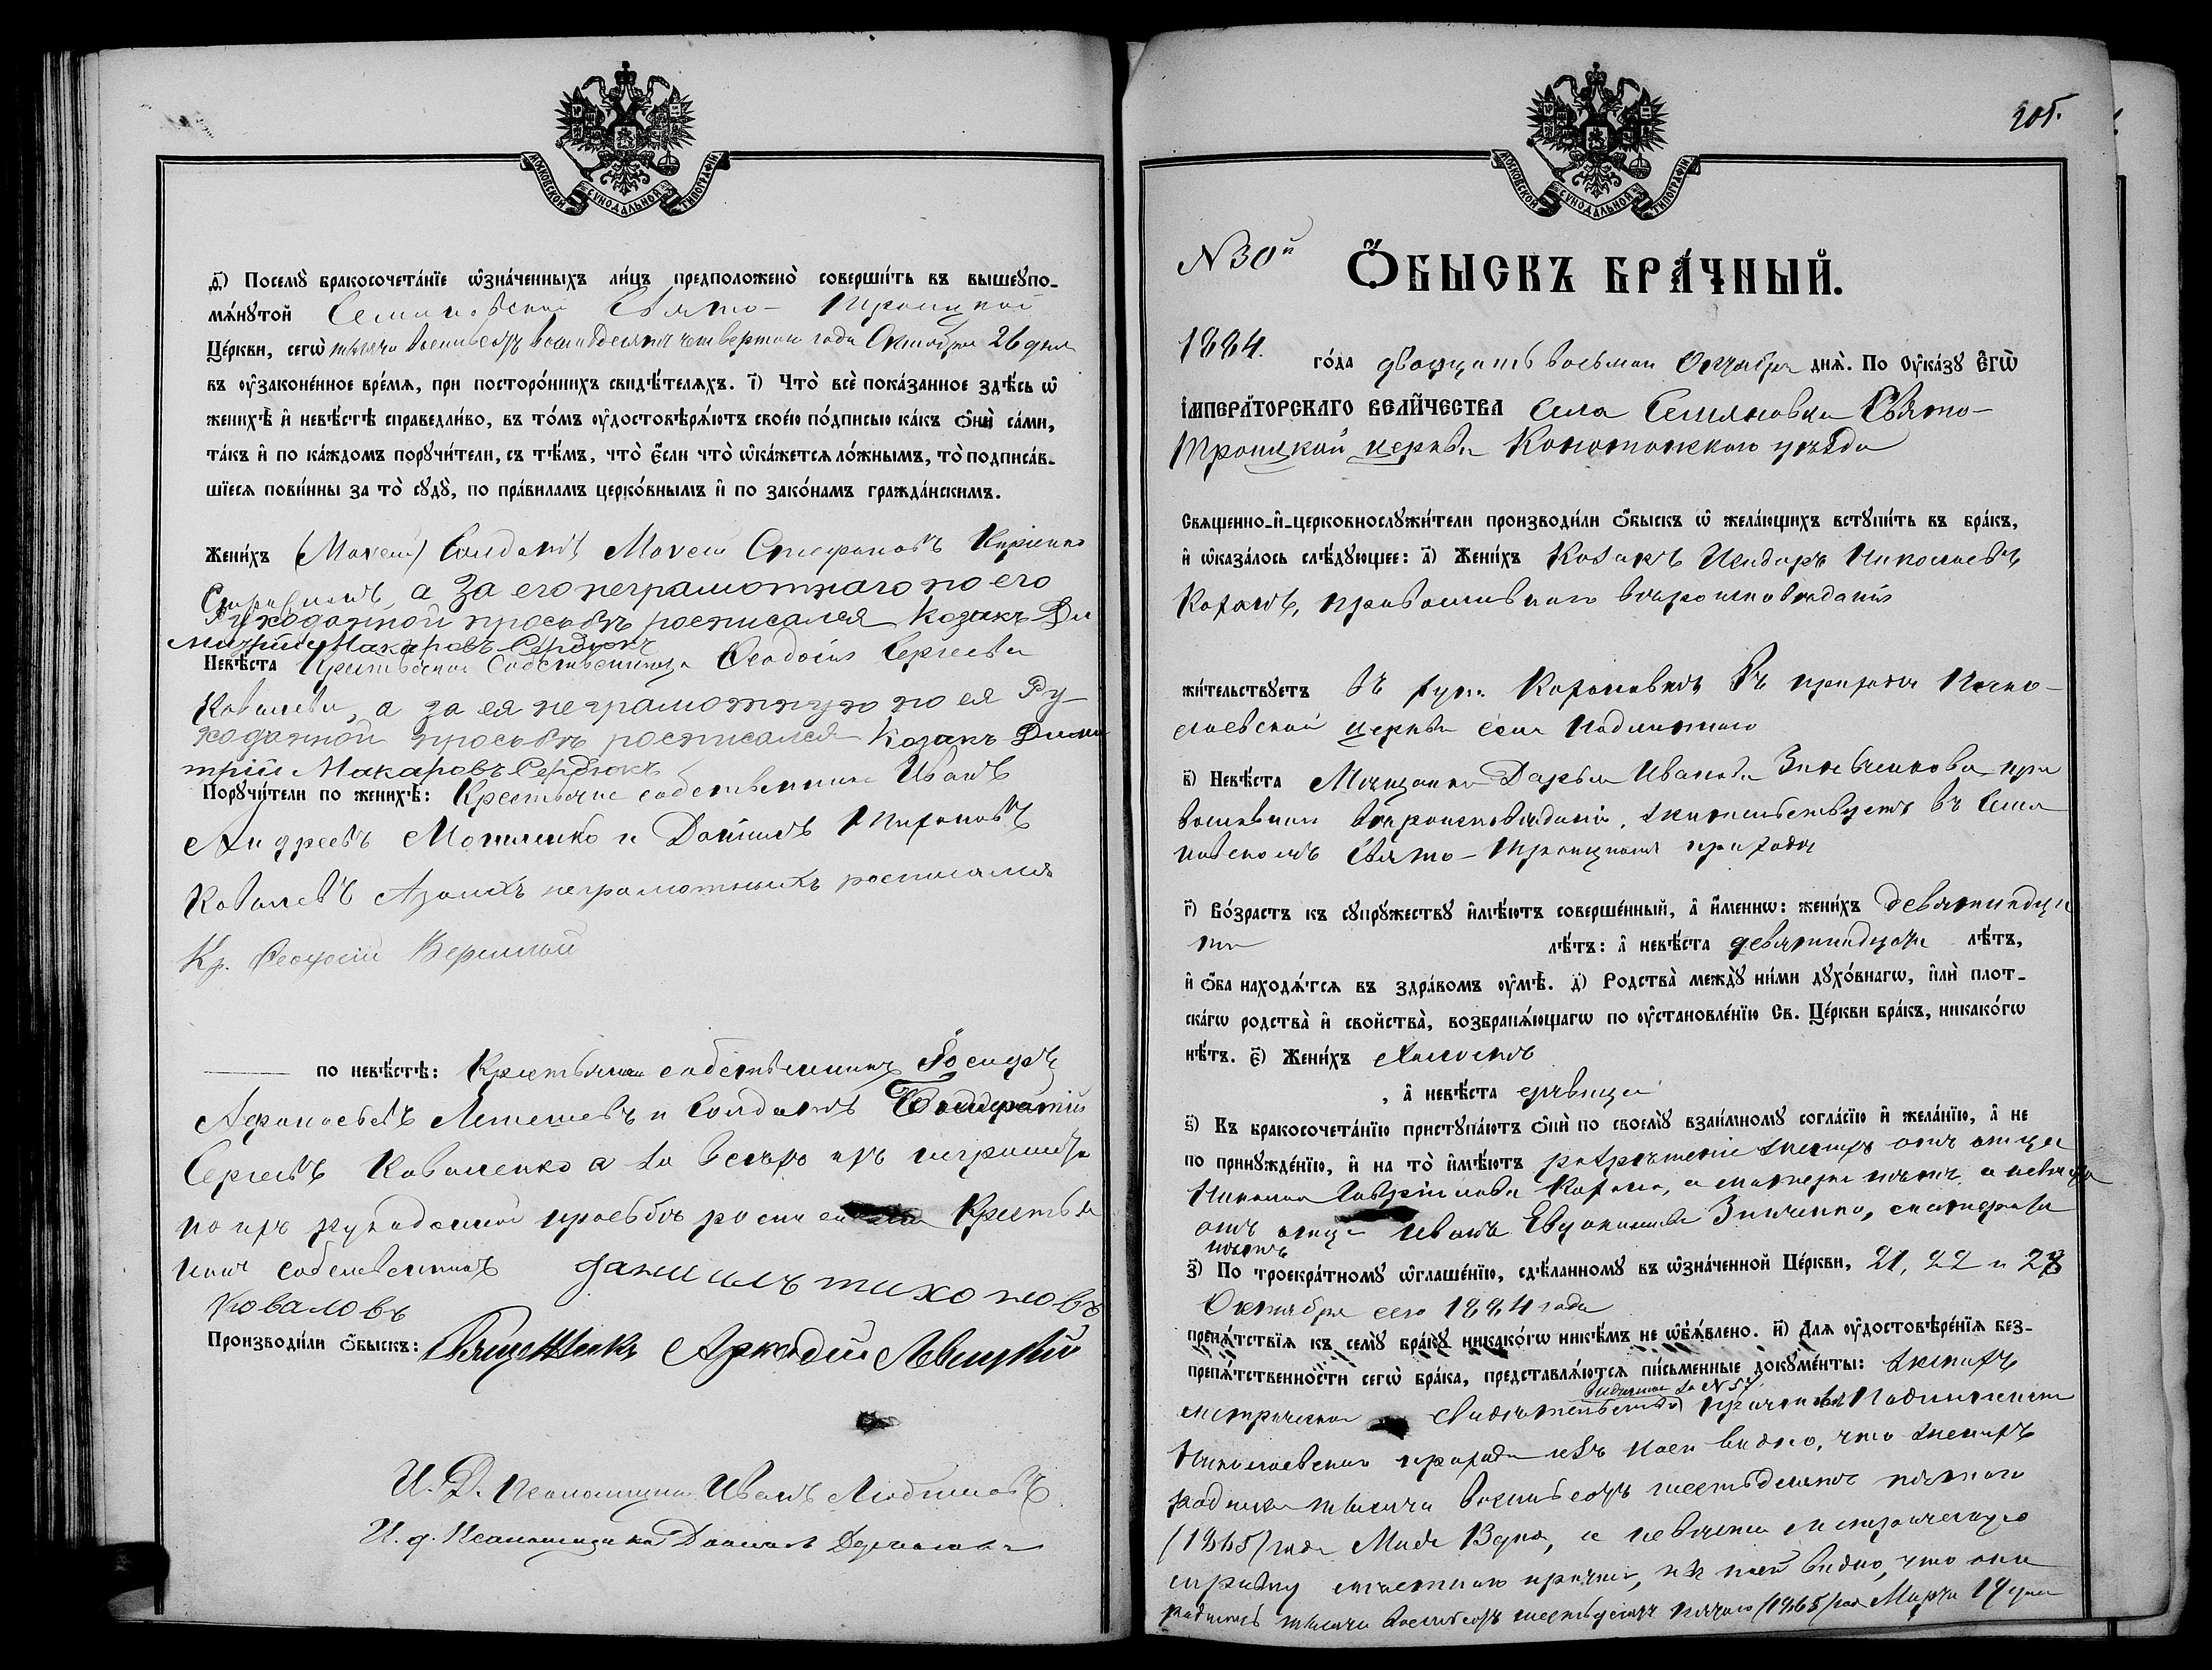 МОСКОВСКОЙ СѴНОДАЛЬНОЙ ТИПОГРАФІИ
д҃) Посемꙋ̀ бракосочета́нїе ѡ҆зна́ченныхъ ли́цъ предположено̀ соверши́ть въ вышеꙋпо-
мѧ́нꙋтой Семяновской Свято- Троицкой
Це́ркви, сегѡ̀ тысяча восемьсотъ восемдесятъ четвертого года Октября 26 дня
въ ᲂу҆законе́нное вре́мѧ, при посторо́ннихъ свидѣ́телѧхъ. і҃) Что̀ всѐ пока́занное здѣ́сь ѡ҆
женихѣ̀ и҆ невѣ́стѣ справедли́во, въ то́мъ ᲂу҆достовѣрѧ́ютъ свое́ю по́дписью ка́къ ѻ҆нѝ са́ми,
та́къ и҆ по ка́ждомъ порꙋчи́тели, съ тѣ́мъ, что̀ є҆́сли что̀ ѡ҆ка́жетсѧ ло́жнымъ, то̀ подписа́в-
шїесѧ пови́нны за то̀ сꙋдꙋ̀, по пра́виламъ церко́внымъ и҆ по зако́намъ гражда́нскимъ.
Жени́хъ (Мокей) Солдатъ Мокей Стефановъ Кириенко
а За его неграмотнаго по его
Рукоданной просьбѣ росписался Козакъ Ди
митрій Макаровъ Сердюкъ
Невѣ́ста Крестьянка Собственница Феодосія Сергеева
Ковалева, а за ея неграмотную по ея Ру-
коданной просьбѣ росписался Козакъ Дими
трій Макаровъ Сердюкъ
Порꙋчи́тели по женихѣ̀: Крестьяне собственники Иванъ
Андреевъ и Даніилъ Тихоновъ
Ковалевъ А за нихъ неграмотныхъ росписался
Кр. Феодосій
по невѣ́стѣ: Крестьянинъ собственникъ Іосифъ
Афанасьевъ и Солдатъ
Сергеевъ Коваленко а за всѣхъ ихъ неграмотных
по ихъ рукоданной просьбѣ росписался Крестья
нинъ собственникъ даниилъ тихоновъ
коваловъ
Производи́ли ѻ҆́быскъ: Священникъ Аркадій Левицкій
И. Д. Псаломщика Иванъ
И. д. Псаломщика
205.
МОСКОВСКОЙ СѴНОДАЛЬНОЙ ТИПОГРАФІИ
N 30й
Ѻ҆́БЫСКЪ БРА́ЧНЫЙ.
1884. го́да двадцать восьмаго Октября днѧ̀. По ᲂу҆ка́зꙋ є҆гѡ̀
і҆мпера́торскаго вели́чества села Семяновки Свято-
Троицкой церкви Конотопского уѣзда
Свѧщенно-и҆-церковнослꙋжи́тели производи́ли ѻ҆́быскъ ѡ҆ жела́ющихъ встꙋпи́ть въ бра́къ,
и҆ ѡ҆каза́лось слѣ́дꙋющее: а҃) Жени́хъ Козакъ Исидоръ Николаевъ
Коханъ, православного вѣроисповѣданія
жи́тельствꙋетъ въ хут. Кохановкѣ Въ приходѣ Нико-
лаевской церкви села Подлипного
в҃) Невѣ́ста Мѣщанка Дарья Иванова Зинченкова пра
вославного вѣроисповѣданія, жительствуетъ въ Семя
новскомъ Свято-Троицкомъ приходѣ
г҃) Во́зрастъ къ сꙋпрꙋ́жествꙋ и҆мѣ́ютъ соверше́нный, а҆ и҆́меннѡ: жени́хъ девятнадца
ти лѣ́тъ: а҆ невѣ́ста девятнадцати лѣ́тъ,
и҆ ѻ҆́ба нахо́дѧтсѧ въ здра́вомъ ᲂу҆мѣ̀. д҃) Родства̀ междꙋ̀ ни́ми дꙋхо́внагѡ, и҆лѝ плот-
ска́гѡ родства̀ и҆ свойства̀, возбранѧ́ющагѡ по ᲂу҆становле́нїю Св. Це́ркви бра́къ, никако́гѡ
нѣ́тъ. є҃) Жени́хъ холостъ
, а҆ невѣ́ста дѣвица
ѕ҃) Къ бракосочета́нїю пристꙋпа́ютъ ѻ҆нѝ по своемꙋ̀ взаи́мномꙋ согла́сїю и҆ жела́нїю, а҆ не
по принꙋжде́нїю, и҆ на то̀ и҆мѣ́ютъ разрѣшеніе женихъ отъ отца
Николая Гавріилова Кохана, а матери нѣтъ, а невѣста
отъ отца Ивана Евдокимова Зинченко, а матери
нѣтъ
з҃) По троекра́тномꙋ ѡ҆глаше́нїю, сдѣ́ланномꙋ въ ѡ҆зна́ченной Це́ркви, 21, 22 и 28
Октября сего 1884 года
препѧ́тствїѧ къ семꙋ̀ бра́кꙋ никако́гѡ никѣ́мъ не ѡ҆б̾ѧ́влено. и҃) Длѧ ᲂу҆достовѣре́нїѧ без-
препѧ́тственности сегѡ̀ бра́ка, представлѧ́ютсѧ пи́сьменные докꙋме́нты: женихъ
метрическое свидѣтельство причта Подлипенской
Николаевского прихода изъ коей видно, что женихъ
родился тысяча восемьсотъ шестьдесятъ пятого
(1865) года Мая 13 дня, а невѣста метрическую
справку мѣстного причта, изъ коей видно, что она
родилась тысяча восемьсотъ шестьдесятъ пятого (1865) год Марта 19 дня